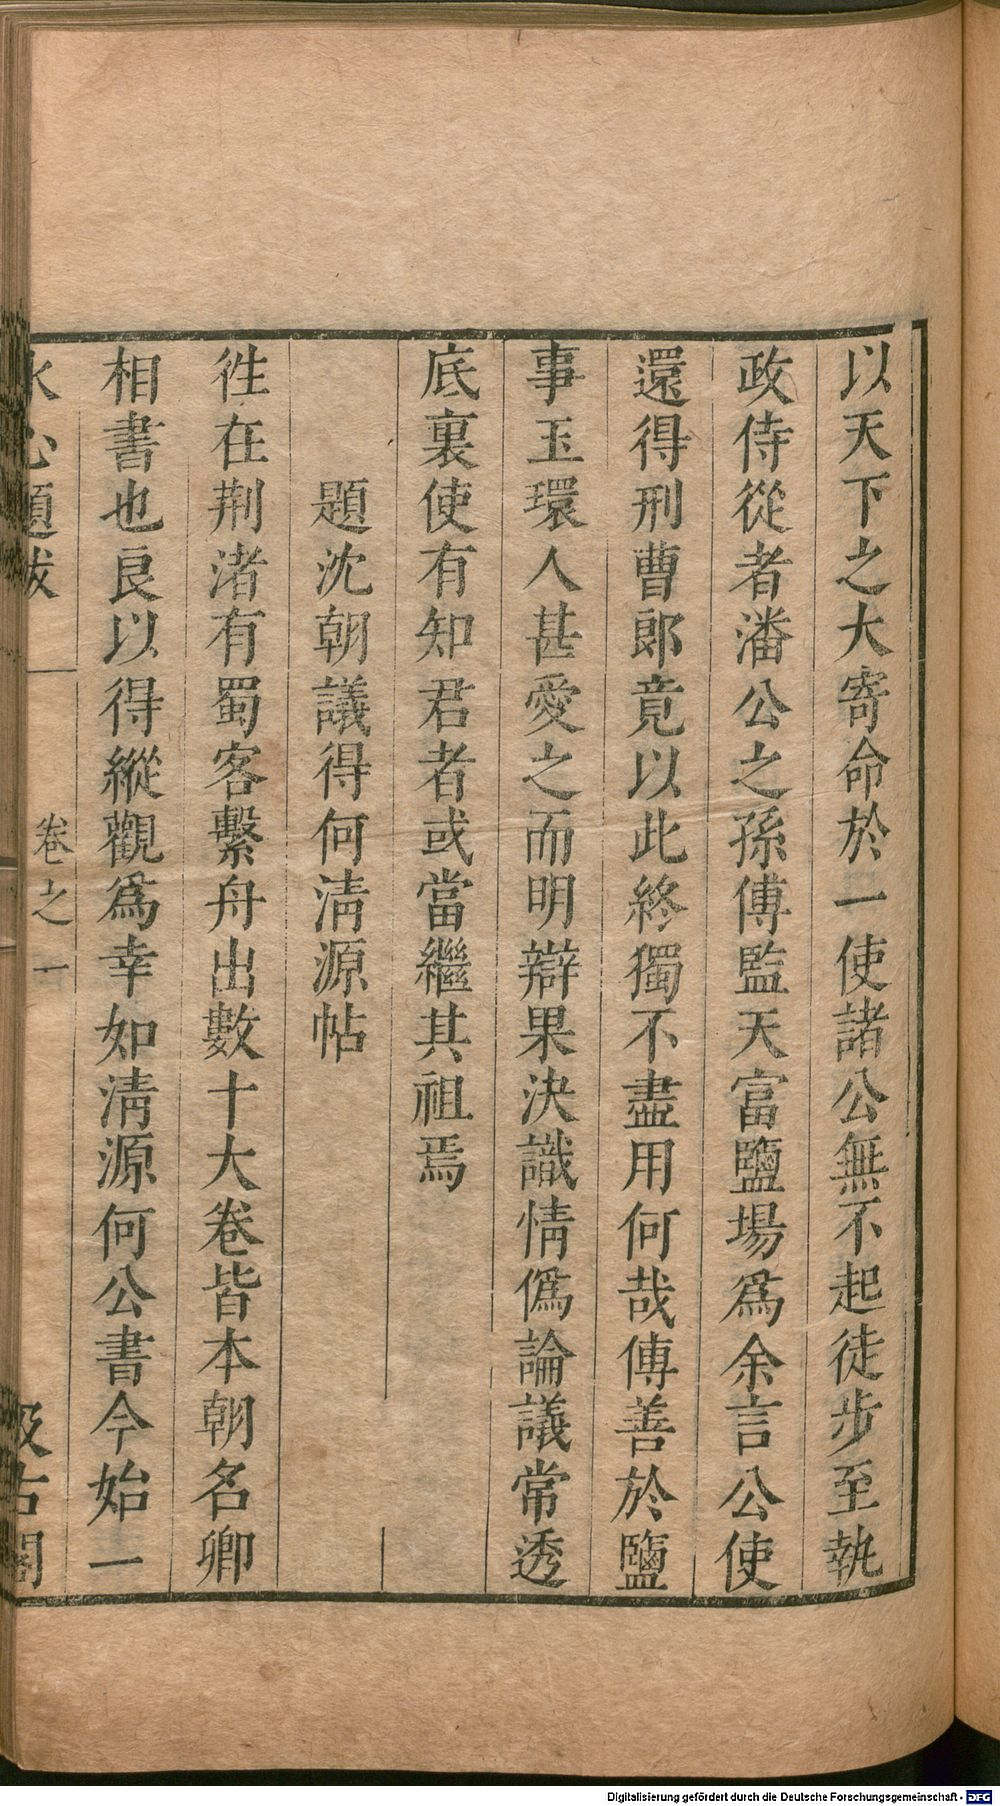 以天下之大寄命於一使諸公無不起徒步至執
政侍從者潘公之孫傅監天富鹽場爲余言公使
還得刑曹郎竟以此終獨不盡用何哉傅善於鹽
事玉環人甚愛之而明辯果決識情僞論議常透
底裏使有知君者或當繼其祖焉
題沈朝議得何淸源帖
徃在荆渚有蜀客繫舟出數十大卷皆本朝名卿
相書也良以得縱觀爲幸如淸源何公書今始一
水心題跋 卷之一 汲古閣
Digitalisierung gefördert durch die Deutsche Forschungsgemeinschaft - DFG